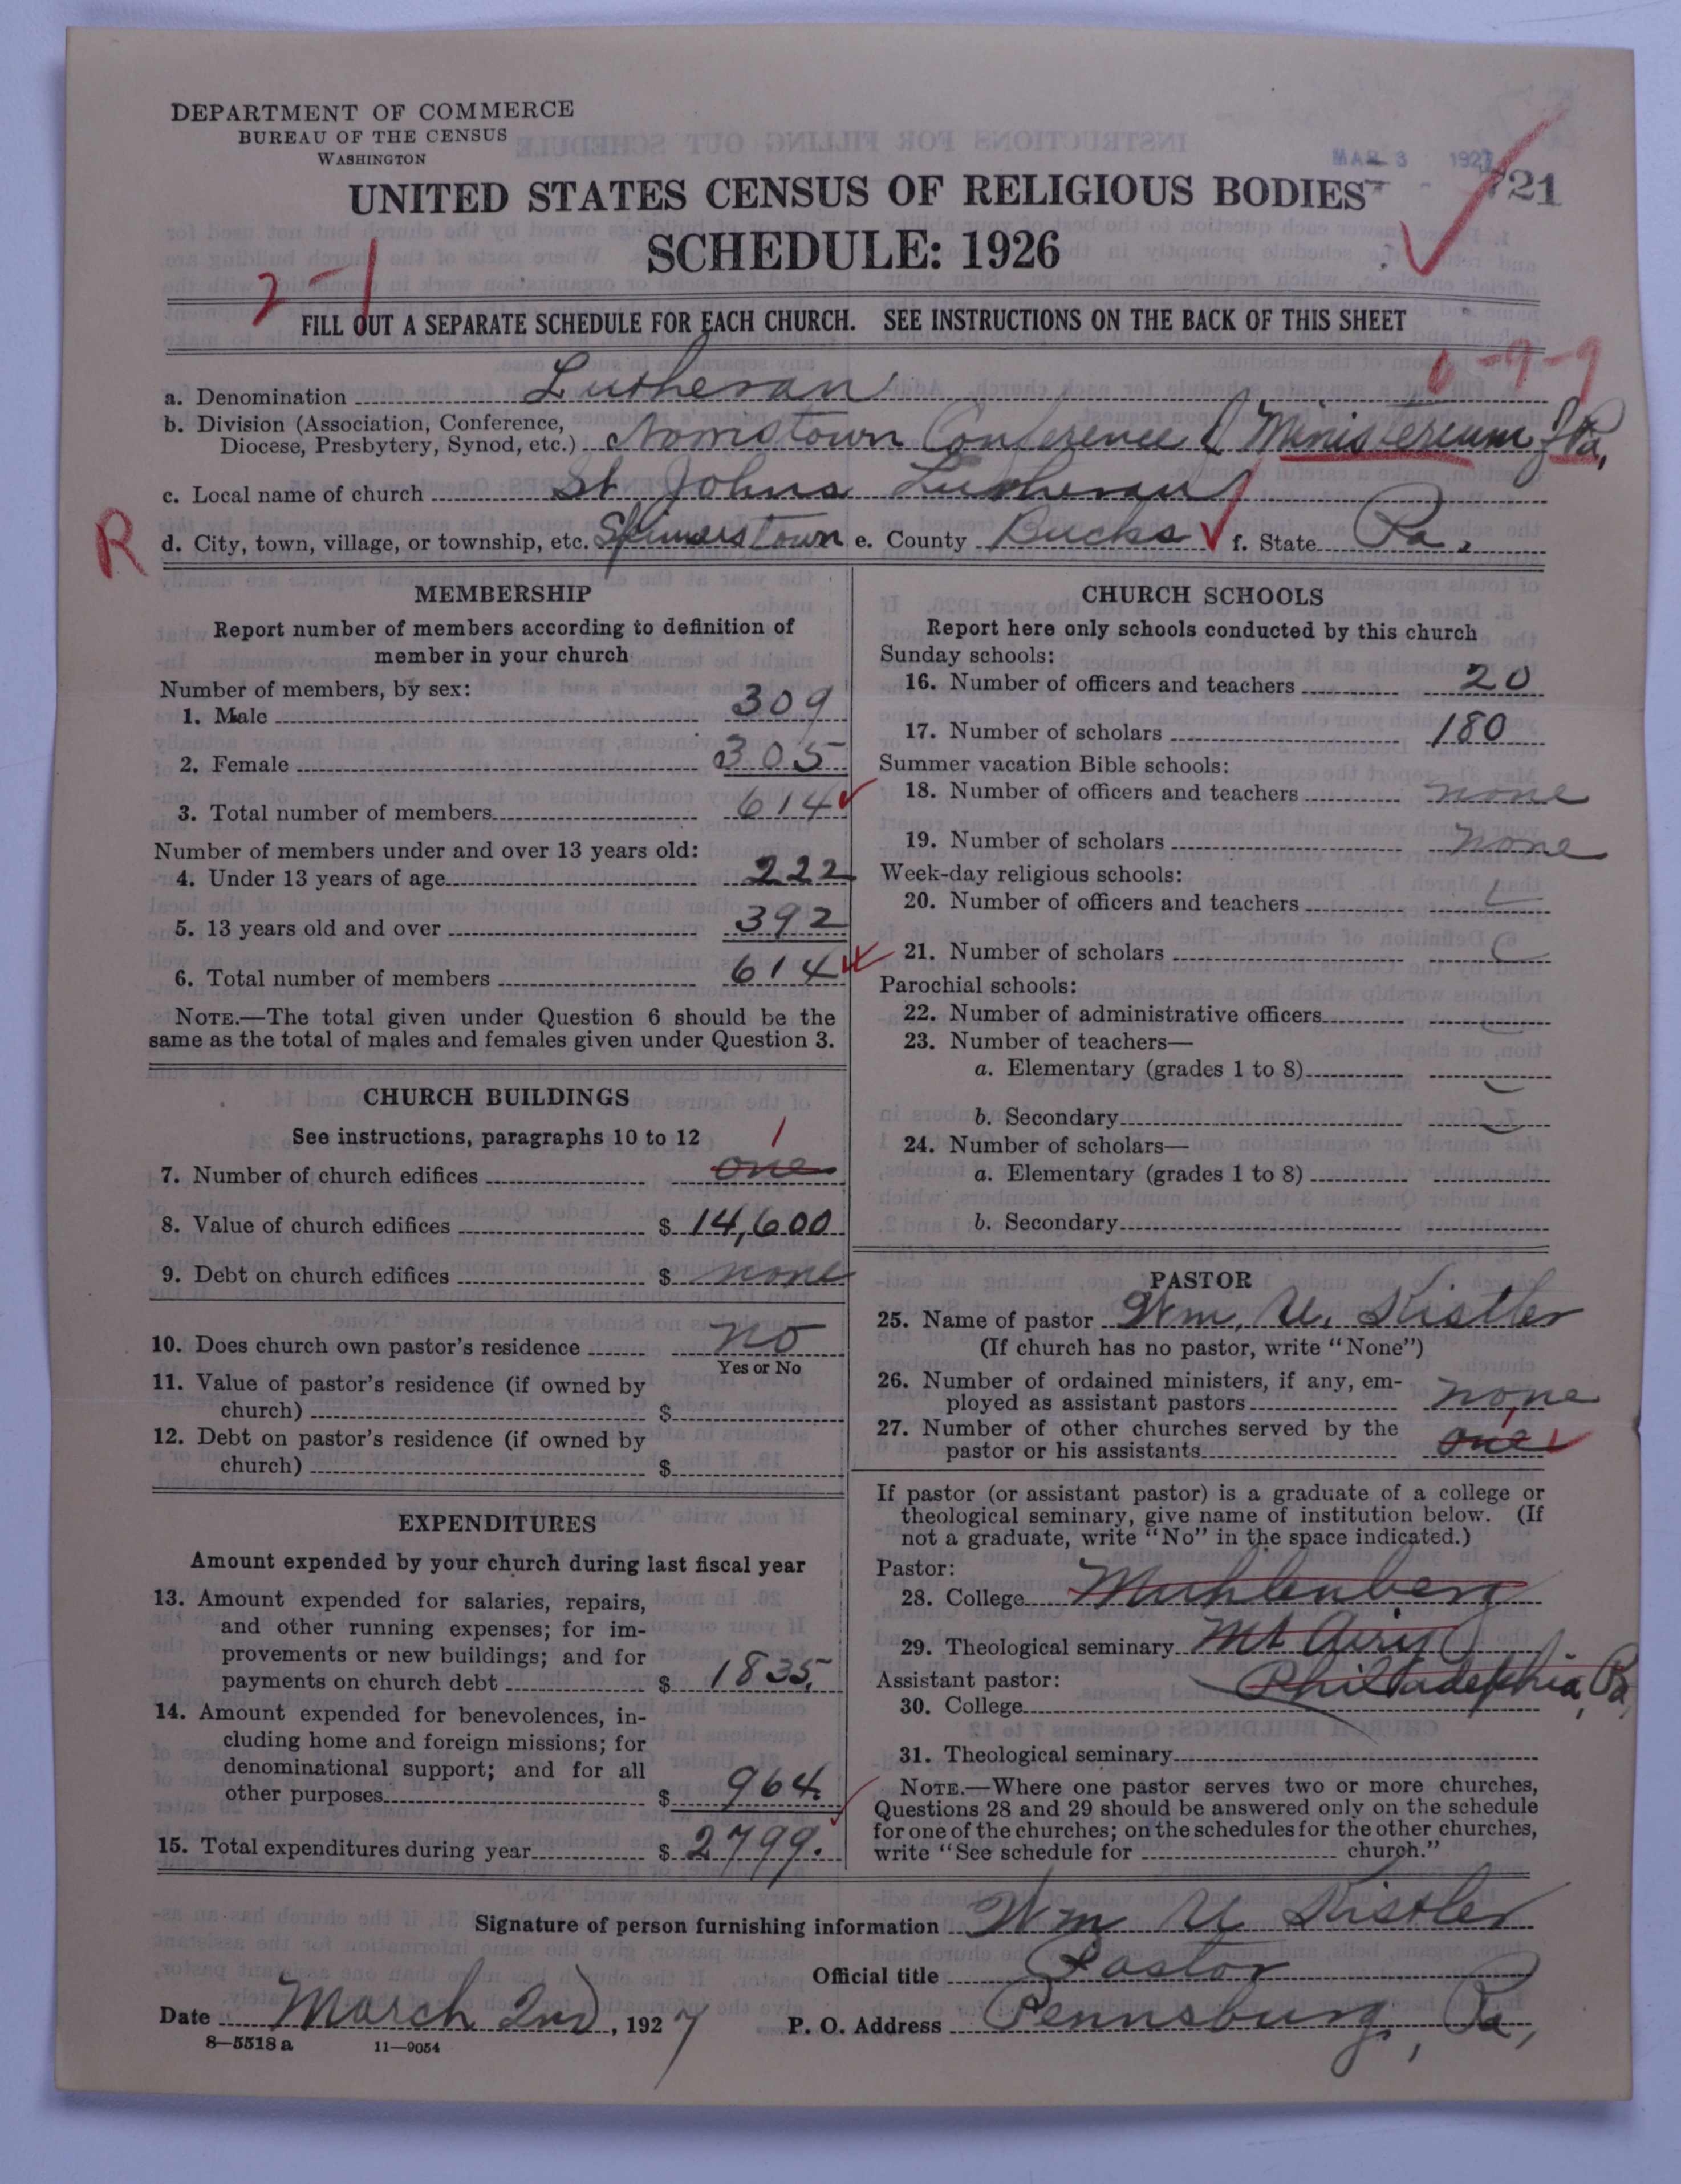 DEPARTMENT OF COMMERCE
BUREAU OF THE CENSUS
WASHINGTON
MAR 3 1927
721
UNITED STATES CENSUS OF RELIGIOUS BODIES
SCHEDULE: 1926
2-1
FILL OUT A SEPARATE SCHEDULE FOR EACH CHURCH. SEE INSTRUCTIONS ON THE BACK OF THIS SHEET
0-9-9
a. Denomination Lutheran
b. Division (Association, Conference,
Diocese, Presbytery, Synod, etc.) Norristown Conference of Ministerium of Pa.
c. Local name of church St Johns Lutheran
R
d. City, town, village, or township, etc. Spinnerstown e. County Bucks f. State Pa.
MEMBERSHIP
Report number of members according to definition of
member in your church
Number of members, by sex:
1. Male 309
2. Female 305
3. Total number of members 614
Number of members under and over 13 years old:
4. Under 13 years of age 222
5. 13 years old and over 392
6. Total number of members 614
NOTE.—The total given under Question 6 should be the
same as the total of males and females given under Question 3.
CHURCH BUILDINGS
See instructions, paragraphs 10 to 12
1
7. Number of church edifices one
8. Value of church edifices $ 14,600
9. Debt on church edifices $ none
10. Does church own pastor's residence no
Yes or No
11. Value of pastor's residence (if owned by
church) $
12. Debt on pastor's residence (if owned by
church) $
EXPENDITURES
Amount expended by your church during last fiscal year
13. Amount expended for salaries, repairs,
and other running expenses; for im-
provements or new buildings; and for
payments on church debt $ 1835.
14. Amount expended for benevolences, in-
cluding home and foreign missions; for
denominational support; and for all
other purposes $ 964.
15. Total expenditures during year $ 2799.
CHURCH SCHOOLS
Report here only schools conducted by this church
Sunday schools:
16. Number of officers and teachers 20
17. Number of scholars 180
Summer vacation Bible schools:
18. Number of officers and teachers none
19. Number of scholars none
Week-day religious schools:
20. Number of officers and teachers
21. Number of scholars
Parochial schools:
22. Number of administrative officers
23. Number of teachers—
a. Elementary (grades 1 to 8)
b. Secondary
24. Number of scholars—
a. Elementary (grades 1 to 8)
b. Secondary
PASTOR
25. Name of pastor Wm. U. Kistler
(If church has no pastor, write "None")
26. Number of ordained ministers, if any, em-
ployed as assistant pastors none
27. Number of other churches served by the
pastor or his assistants one
If pastor (or assistant pastor) is a graduate of a college or
theological seminary, give name of institution below. (If
not a graduate, write "No" in the space indicated.)
Pastor:
28. College Muhlenberg
29. Theological seminary Mt Airy
Assistant pastor: Philadelphia, Pa.
30. College
31. Theological seminary
NOTE.—Where one pastor serves two or more churches,
Questions 28 and 29 should be answered only on the schedule
for one of the churches; on the schedules for the other churches,
write "See schedule for church."
Signature of person furnishing information Wm U Kistler
Official title Pastor
Date March 2nd, 1927 P. O. Address Pennsburg, Pa.
8—5518 a 11—9054